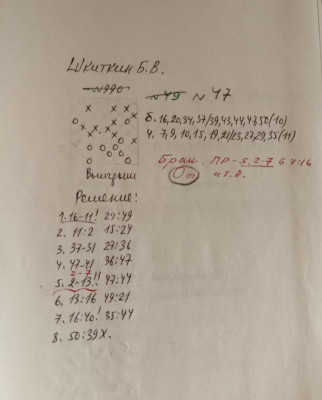 Шкиткин Б.В.
№990
№49 №47
б. 16, 20, 34, 37/39, 43, 44, 47, 50 (10)
ч. 7, 9, 10, 15, 19, 21/23, 27, 29, 35 (11)
Брак. ПР-5. 2-7 6 7:16
0п и т.д.
Выигрыш
Решение:
1. 16-11! 29:49
2. 11:2 15:24
3. 37-31 27:36
4. 47-41 36:47
2-7
5. 2-13!! 47:44
6. 13:16 49:21
7. 16:40! 35:44
8. 50:39X.